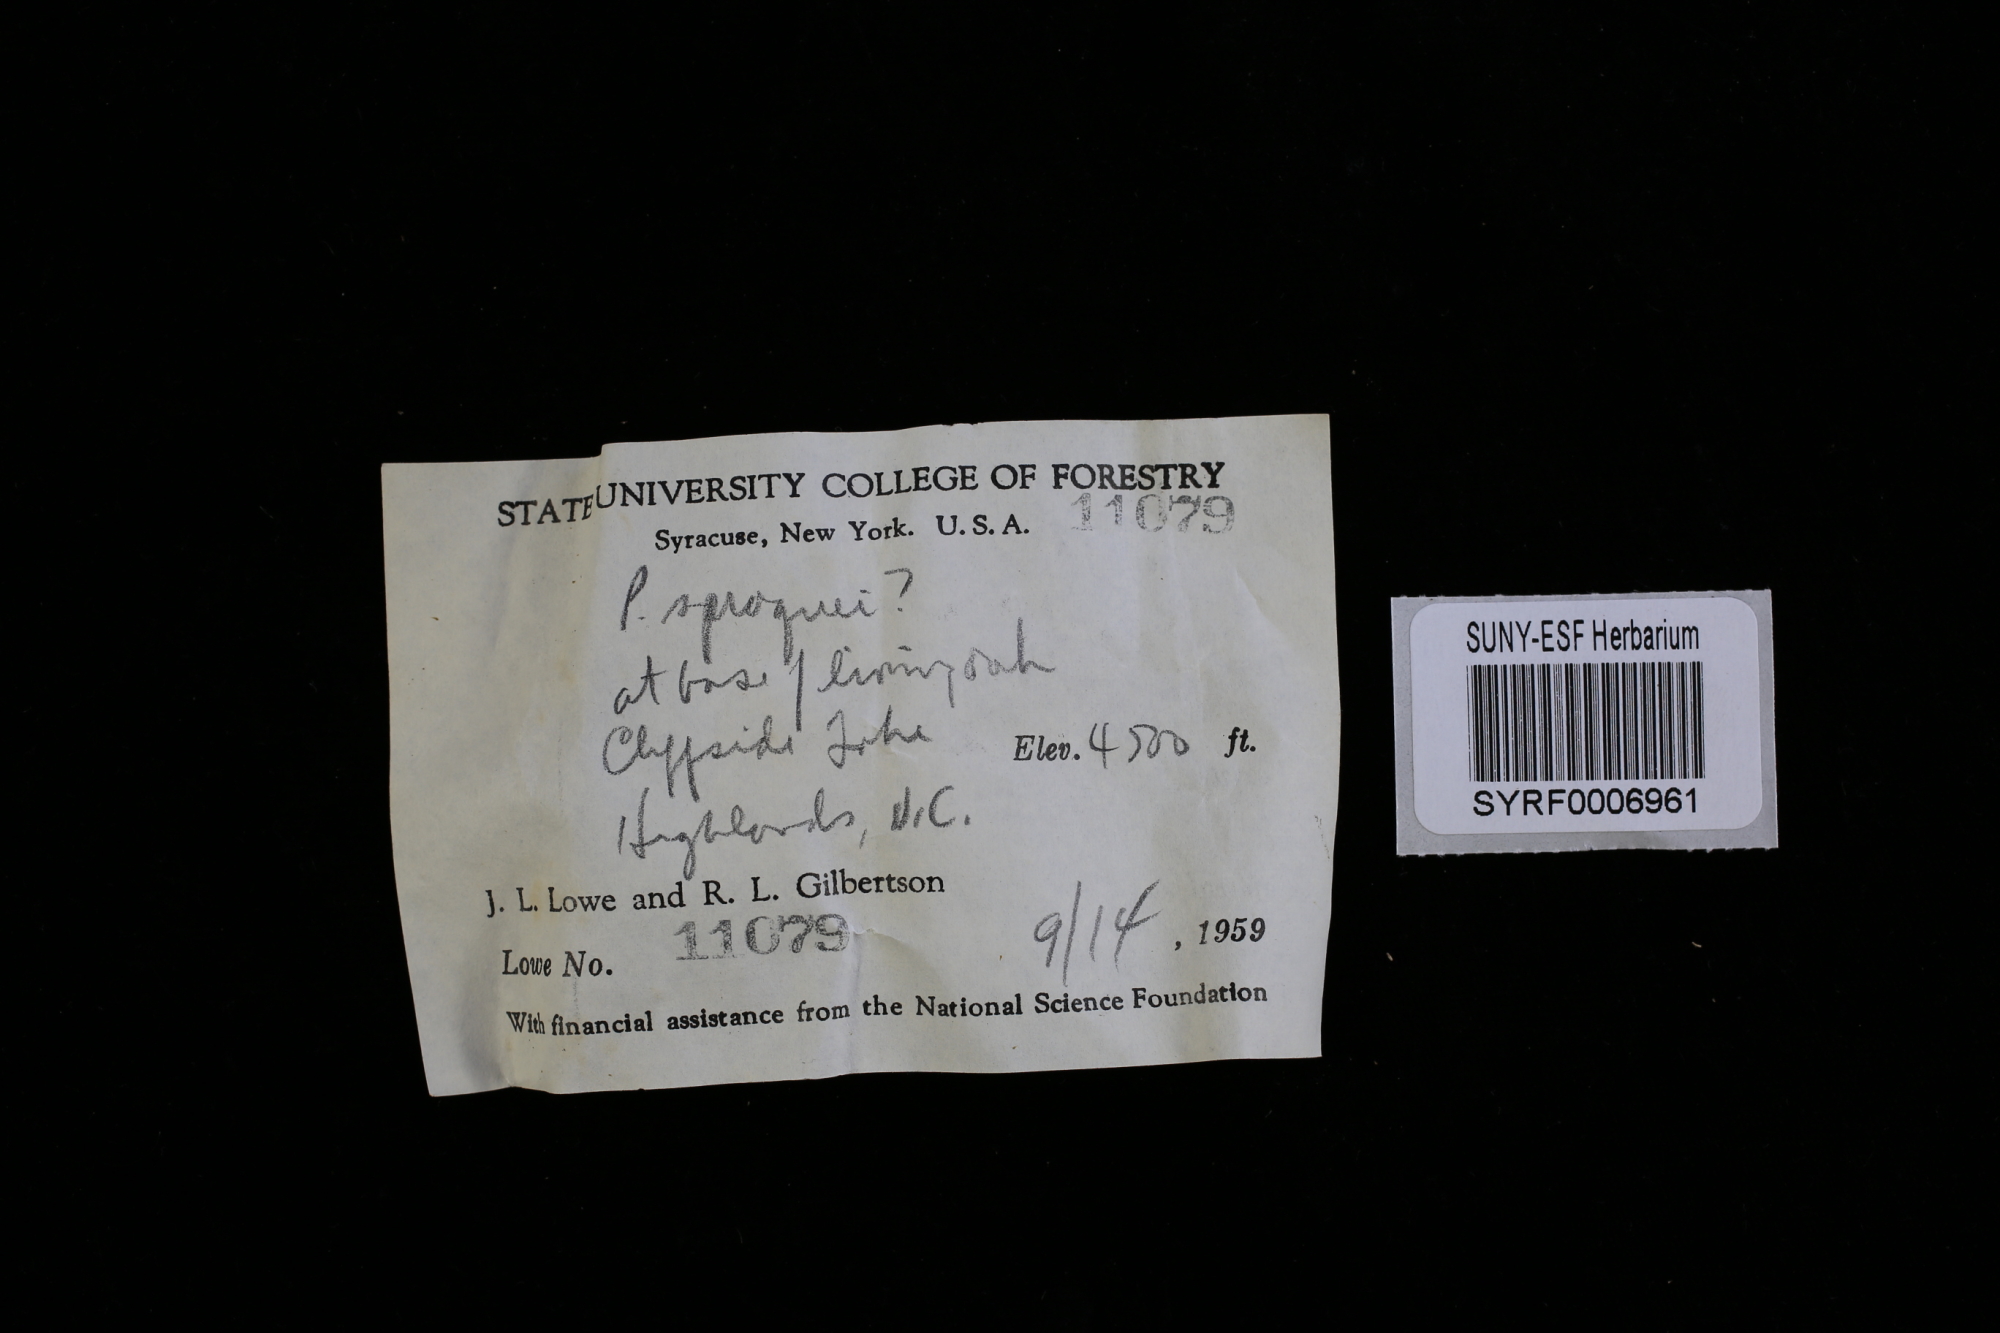 STATE UNIVERSITY COLLEGE OF FORESTRY
Syracuse, New York. U. S. A. 11079
P. spraguei?
at base of living oak
Cliffside Lake Elev. 4500 ft.
Highlands, N.C.
J. L. Lowe and R. L. Gilbertson
Lowe No. 11079 9/14, 1959
With financial assistance from the National Science Foundation
SUNY-ESF Herbarium
SYRF0006961